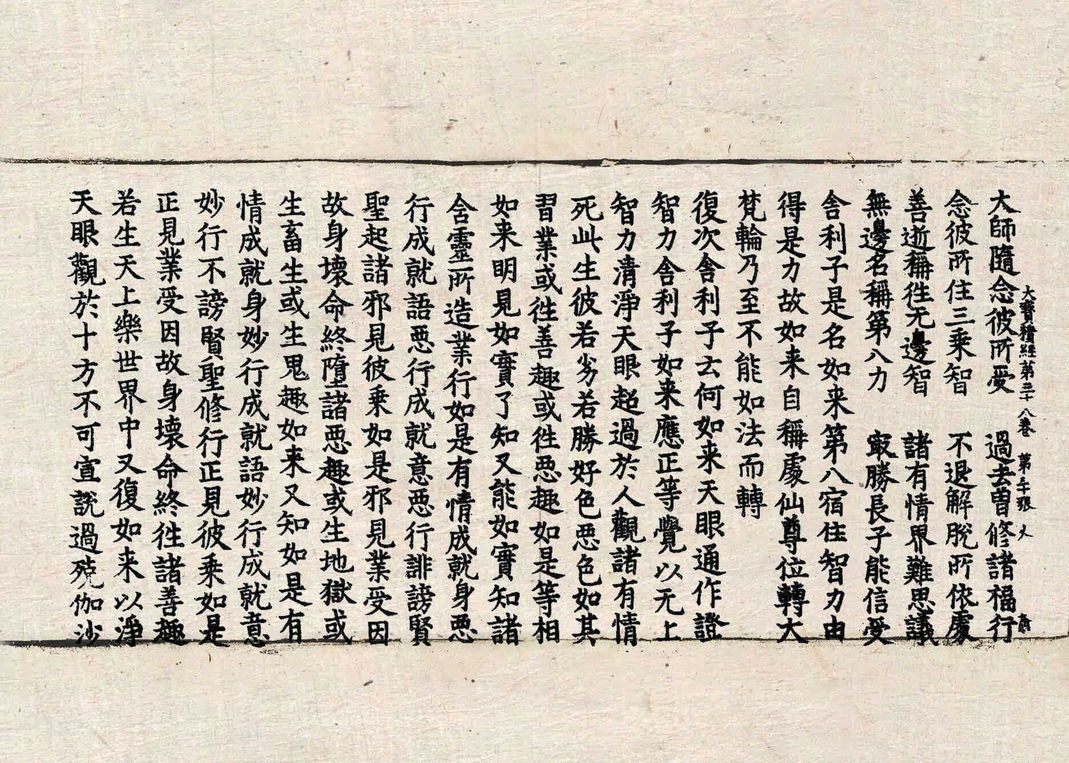 大師隨念彼所受　過去曾修諸福行
大寶積經第三十八卷　第二十張　火
念彼所住三乘智　不退解脫所依處
善逝稱往无邊智　諸有情界難思議
無邊名稱第八力　㝡勝長子能信受
舍利子是名如来第八宿住智力由
得是力故如来自稱處仙尊位轉大
梵輪乃至不能如法而轉
復次舍利子云何如来天眼通作證
智力舍利子如来應正等覺以无上
智力清淨天眼超過於人觀諸有情
死此生彼若劣若勝好色惡色如其
習業或往善趣或往惡趣如是等相
如来明見如實了知又能如實知諸
含靈所造業行如是有情成就身惡
行成就語惡行成就意惡行誹謗賢
聖起諸邪見彼乘如是邪見業受因
故身壞命終墮諸惡趣或生地獄或
生畜生或生鬼趣如来又知如是有
情成就身妙行成就語妙行成就意
妙行不謗賢聖修行正見彼乘如是
正見業受因故身壞命終往諸善趣
若生天上樂世界中又復如来以淨
天眼觀於十方不可宣說過殑伽沙